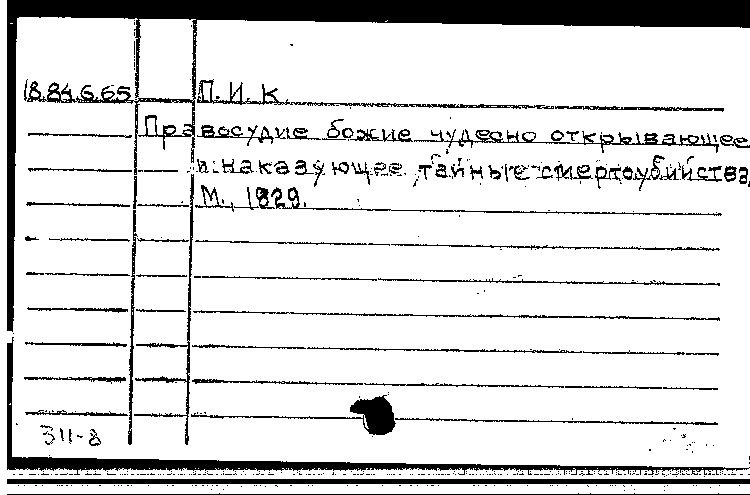 18.84.6.65 П. И. К.
Правосудие божие чудесно открывающее
и наказующее тайные смертоубийства,
М., 1829.
311-8